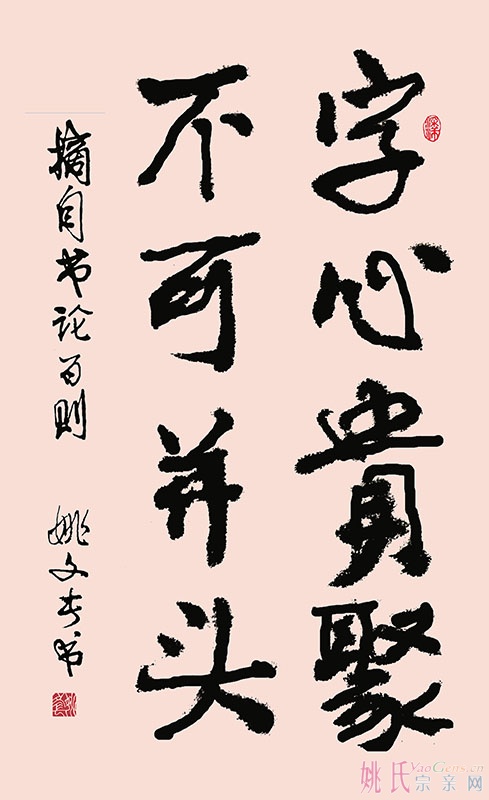 字心貴聚
不可并头
摘自书论百则
姚文书
姚氏宗亲网
YaoGens.cn